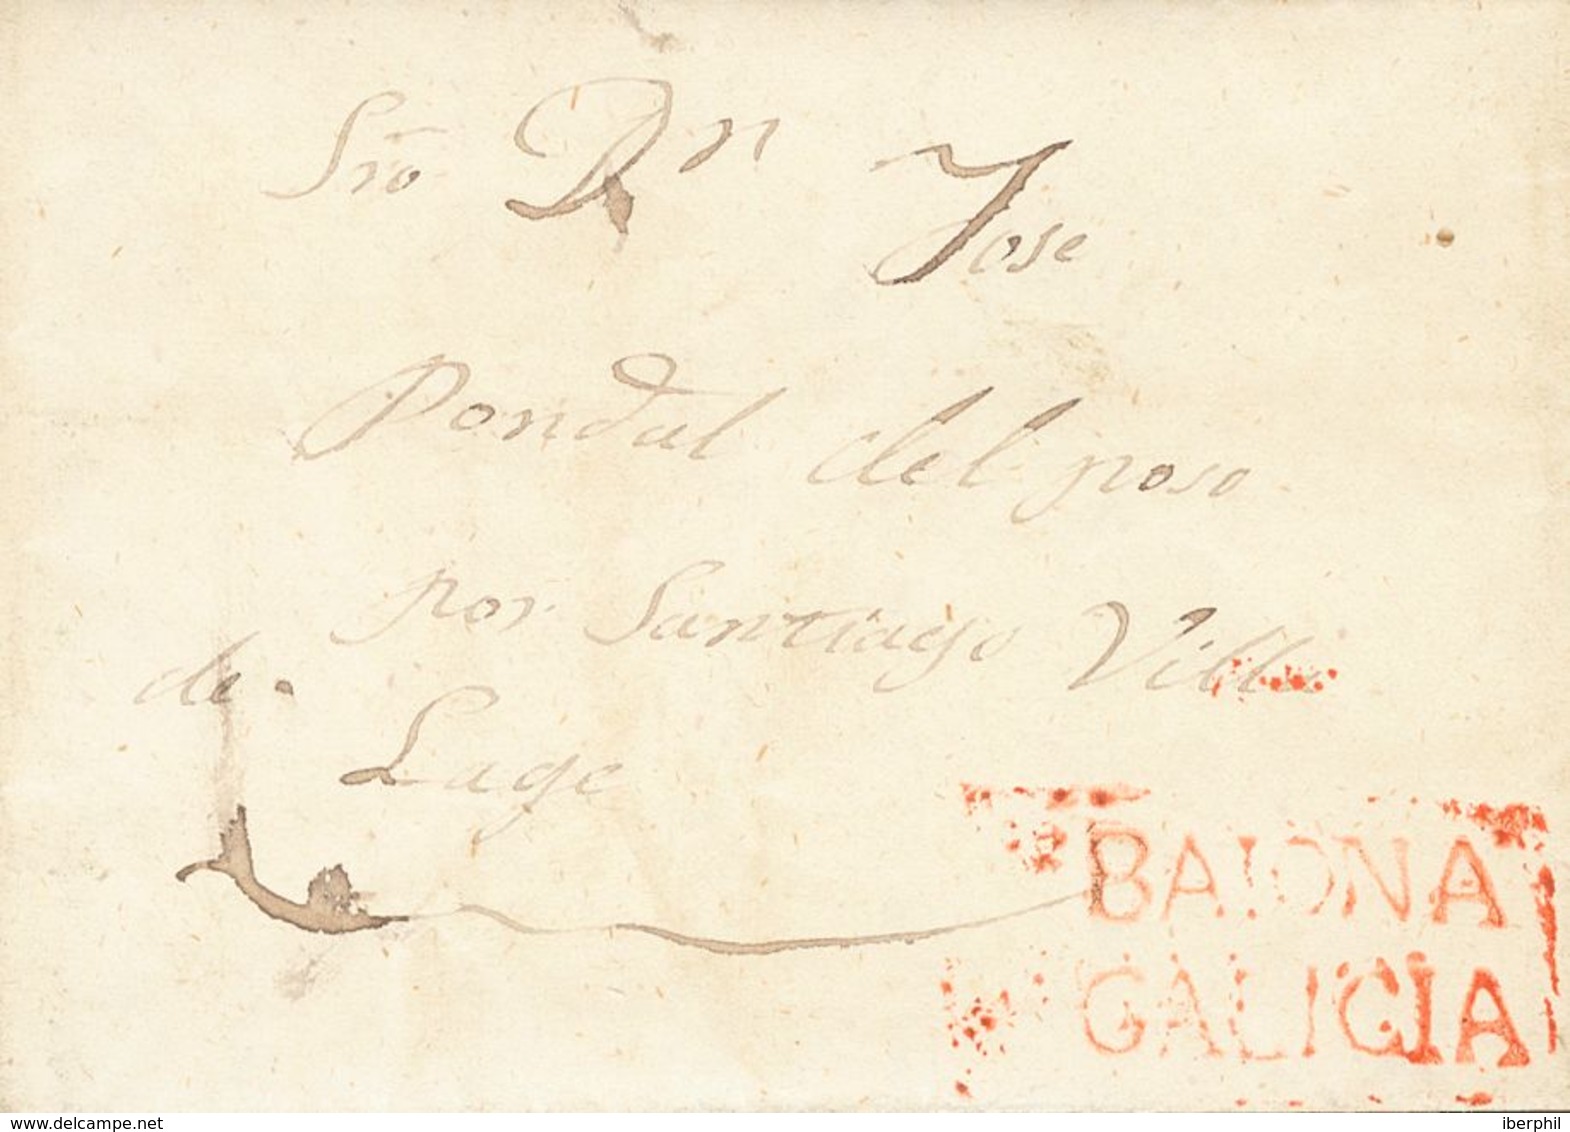 Sro Dn Jose
Pondal del poso
por Santiago Villa
de Lage
BAIONA
GALICIA
www.delcampe.net
iberphil